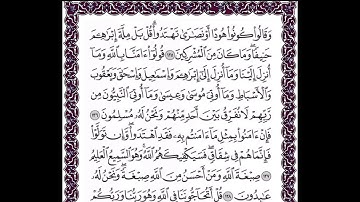 وَقَالُوا۟ كُونُوا۟ هُودًا أَوْ نَصَٰرَىٰ تَهْتَدُوا۟ ۗ قُلْ بَلْ مِلَّةَ إِبْرَٰهِـۧمَ
حَنِيفًا ۖ وَمَا كَانَ مِنَ ٱلْمُشْرِكِينَ ١٣٥ قُولُوٓا۟ ءَامَنَّا بِٱللَّهِ وَمَآ
أُنزِلَ إِلَيْنَا وَمَآ أُنزِلَ إِلَىٰٓ إِبْرَٰهِـۧمَ وَإِسْمَٰعِيلَ وَإِسْحَٰقَ وَيَعْقُوبَ
وَٱلْأَسْبَاطِ وَمَآ أُوتِىَ مُوسَىٰ وَعِيسَىٰ وَمَآ أُوتِىَ ٱلنَّبِيُّونَ مِن
رَّبِّهِمْ لَا نُفَرِّقُ بَيْنَ أَحَدٍ مِّنْهُمْ وَنَحْنُ لَهُۥ مُسْلِمُونَ ١٣٦
فَإِنْ ءَامَنُوا۟ بِمِثْلِ مَآ ءَامَنتُم بِهِۦ فَقَدِ ٱهْتَدَوا۟ ۖ وَّإِن تَوَلَّوْا۟
فَإِنَّمَا هُمْ فِى شِقَاقٍ ۖ فَسَيَكْفِيكَهُمُ ٱللَّهُ ۚ وَهُوَ ٱلسَّمِيعُ ٱلْعَلِيمُ
١٣٧ صِبْغَةَ ٱللَّهِ ۖ وَمَنْ أَحْسَنُ مِنَ ٱللَّهِ صِبْغَةً ۖ وَنَحْنُ لَهُۥ
عَٰبِدُونَ ١٣٨ قُلْ أَتُحَآجُّونَنَا فِى ٱللَّهِ وَهُوَ رَبُّنَا وَرَبُّكُمْ